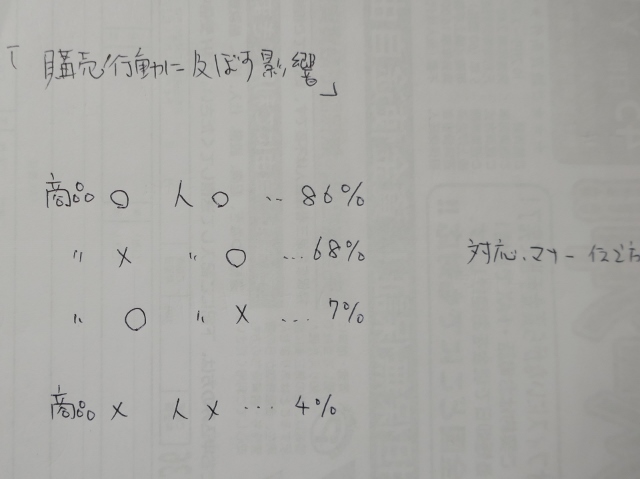 「購売行動に及ぼす影響」
商品○ 人○ … 86%
〃 × 〃 ○ … 68%
対応、マナー
〃 ○ 〃 × … 7%
商品× 人× … 4%